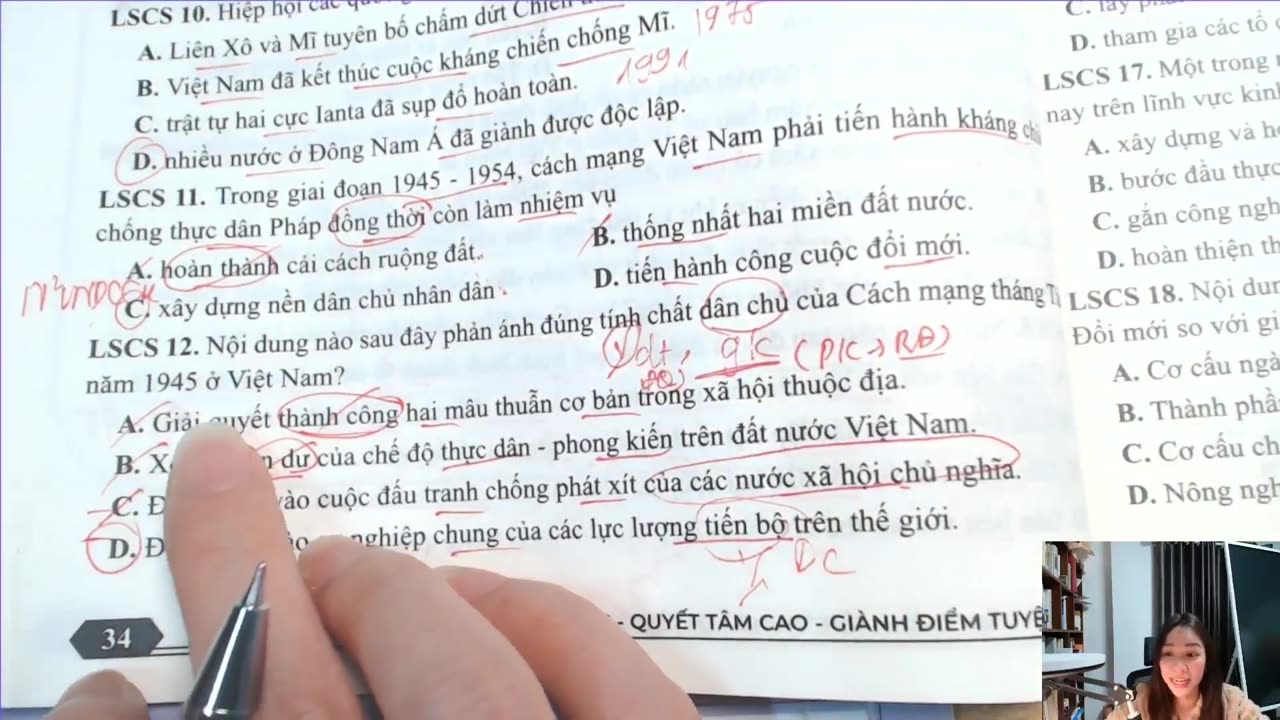 LSCS 10. Hiệp hội các
A. Liên Xô và Mĩ tuyên bố chấm dứt Chiến
B. Việt Nam đã kết thúc cuộc kháng chiến chống Mĩ. 1975
C. trật tự hai cực Ianta đã sụp đổ hoàn toàn. 1991
D. nhiều nước ở Đông Nam Á đã giành được độc lập.
LSCS 11. Trong giai đoạn 1945 - 1954, cách mạng Việt Nam phải tiến hành kháng
chống thực dân Pháp đồng thời còn làm nhiệm vụ
A. hoàn thành cải cách ruộng đất.
B. thống nhất hai miền đất nước.
C. xây dựng nền dân chủ nhân dân.
D. tiến hành công cuộc đổi mới.
LSCS 12. Nội dung nào sau đây phản ánh đúng tính chất dân chủ của Cách mạng tháng
năm 1945 ở Việt Nam?
A. Giải quyết thành công hai mâu thuẫn cơ bản trong xã hội thuộc địa.
B. dư của chế độ thực dân - phong kiến trên đất nước Việt Nam.
C. vào cuộc đấu tranh chống phát xít của các nước xã hội chủ nghĩa.
D. nghiệp chung của các lực lượng tiến bộ trên thế giới.
DC
34
- QUYẾT TÂM CAO - GIÀNH ĐIỂM
C. lấy
D. tham gia các tổ
LSCS 17. Một trong
nay trên lĩnh vực kinh
A. xây dựng và
B. bước đầu thực
C. gắn công
D. hoàn thiện
LSCS 18. Nội dung
Đổi mới so với
A. Cơ cấu
B. Thành phần
C. Cơ cấu
D. Nông